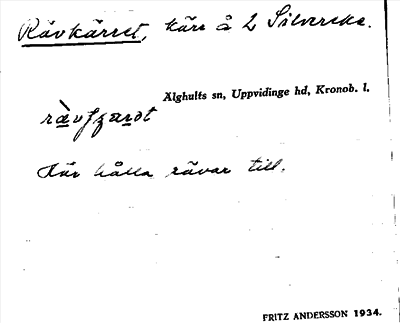 Rävkärret, kärr å 2 Silvereke.
Älghults sn, Uppvidinge hd, Kronob. l.
Här hålla rävar till.
FRITZ ANDERSSON 1934.